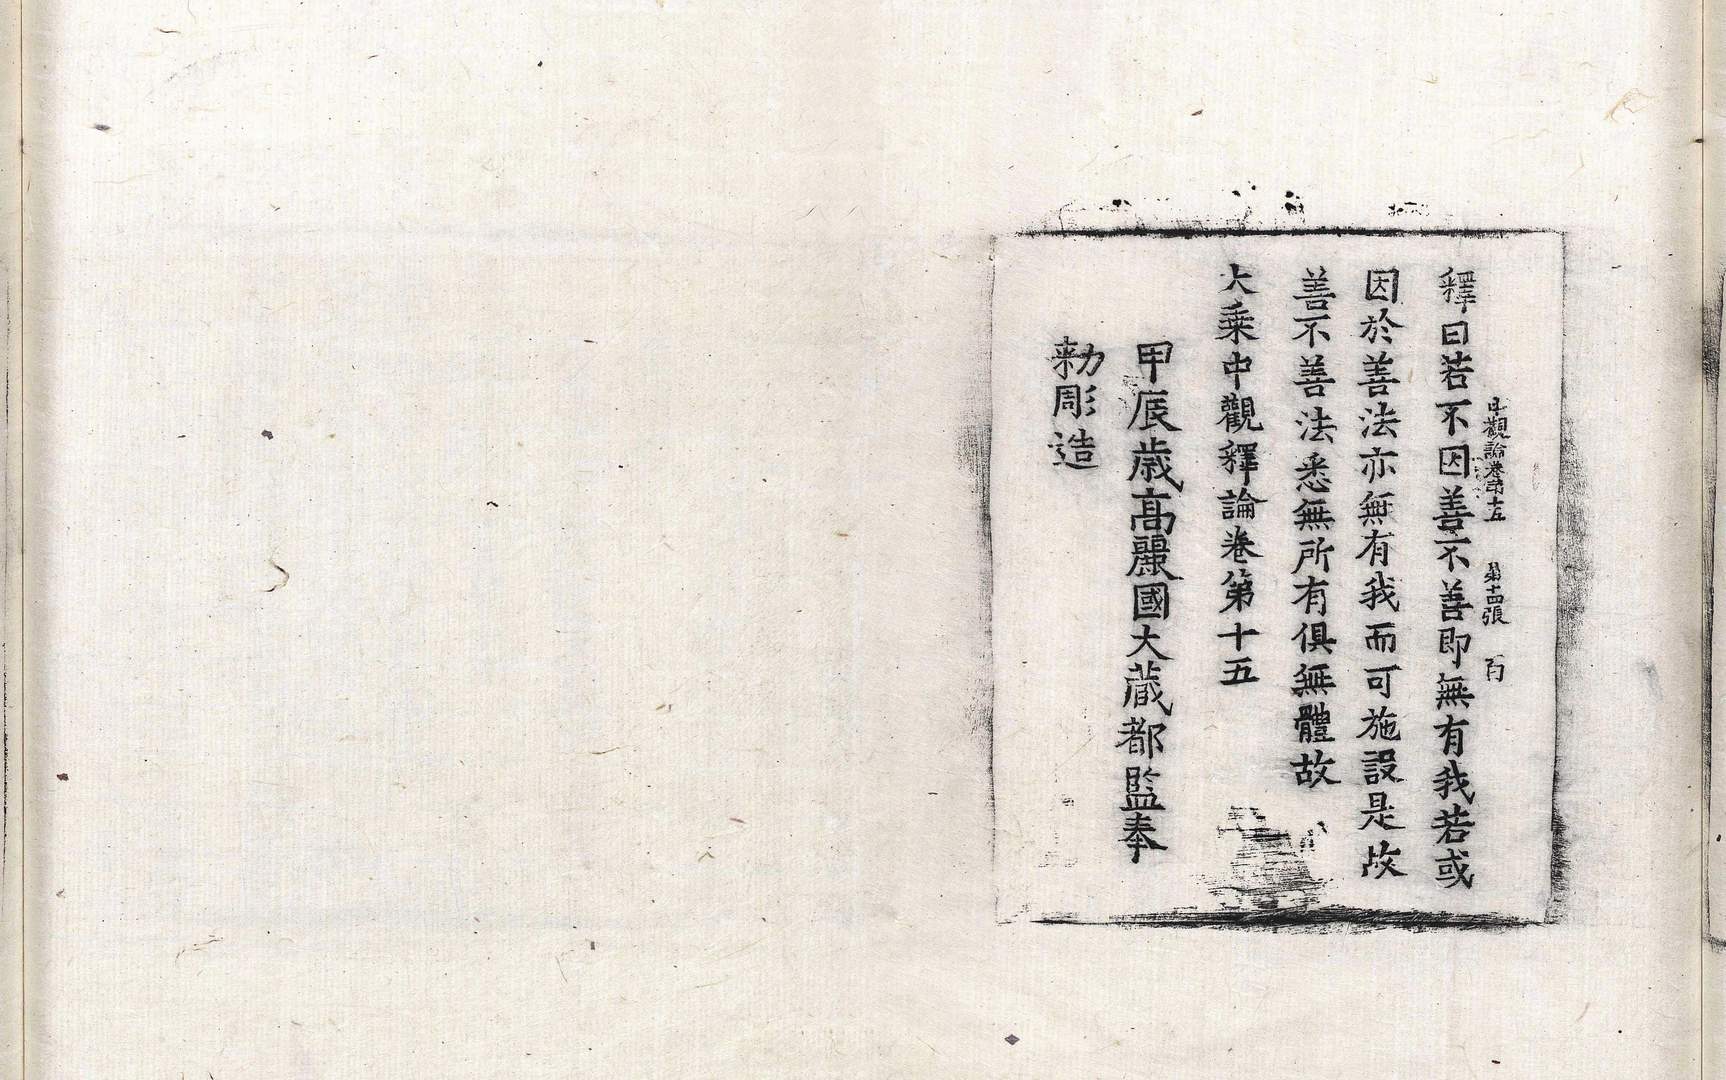 中觀論卷第十五 第十四張 百
釋曰若不因善不善即無有我若或
因於善法亦無有我而可施設是故
善不善法悉無所有俱無體故
大乘中觀釋論卷第十五
甲辰歲高麗國大藏都監奉
勅彫造